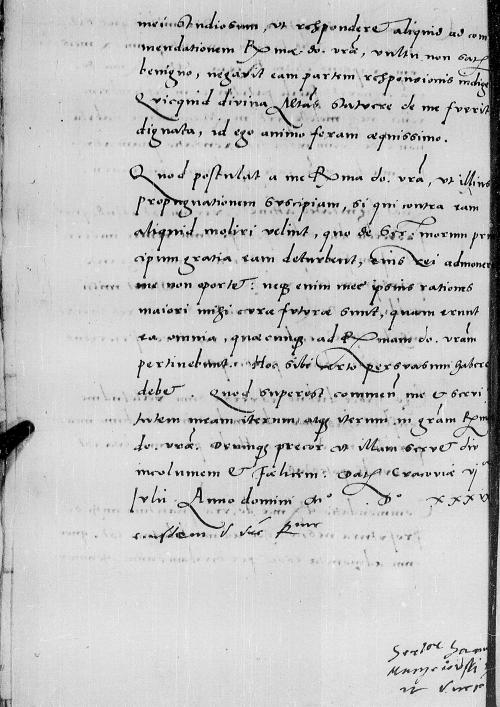 mei studiosum, ut respondere aliquid ad com
mendationem R.mae do. vrae, vultu non satis
benigno, negavit eam partem responsionis indige
Quicquid divina Mtas statuere de me fuerit
dignata, id ego animo feram aequissimo.
Quod postulat a me R.ma do. vra, ut illius
propugnationem suscipiam, si qui contra eam
aliquid moliri velint, quo de Ser. horum prin
cipum gratia eam deturbent, eius rei admoneri
me non oportet: neque enim meae ipsius rationes
maiori mihi curae futurae sunt, quam erunt
ea omnia, quaecunque ad R.mam do. vram
pertinebunt. Hoc sibi certo persuasum habere
debet. Quod superest commen me et servi
tutem meam iterum atque iterum in gram R.mae
do. vrae. Deumque precor, ut illam servet diu
incolumem et felicem. Dat. Cracoviae vi
Julii Anno domini M° D° XXXV
eiusdem